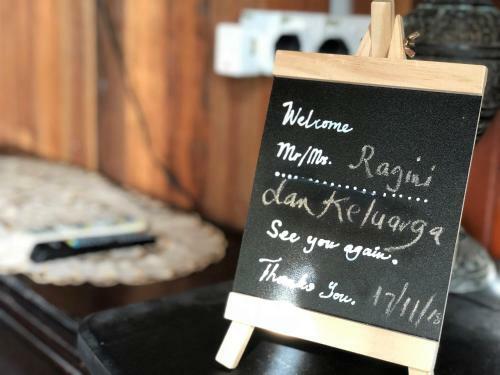 Welcome
Mr/Ms. Ragini
dan Keluarga
See you again.
Thank You. 17/11/18